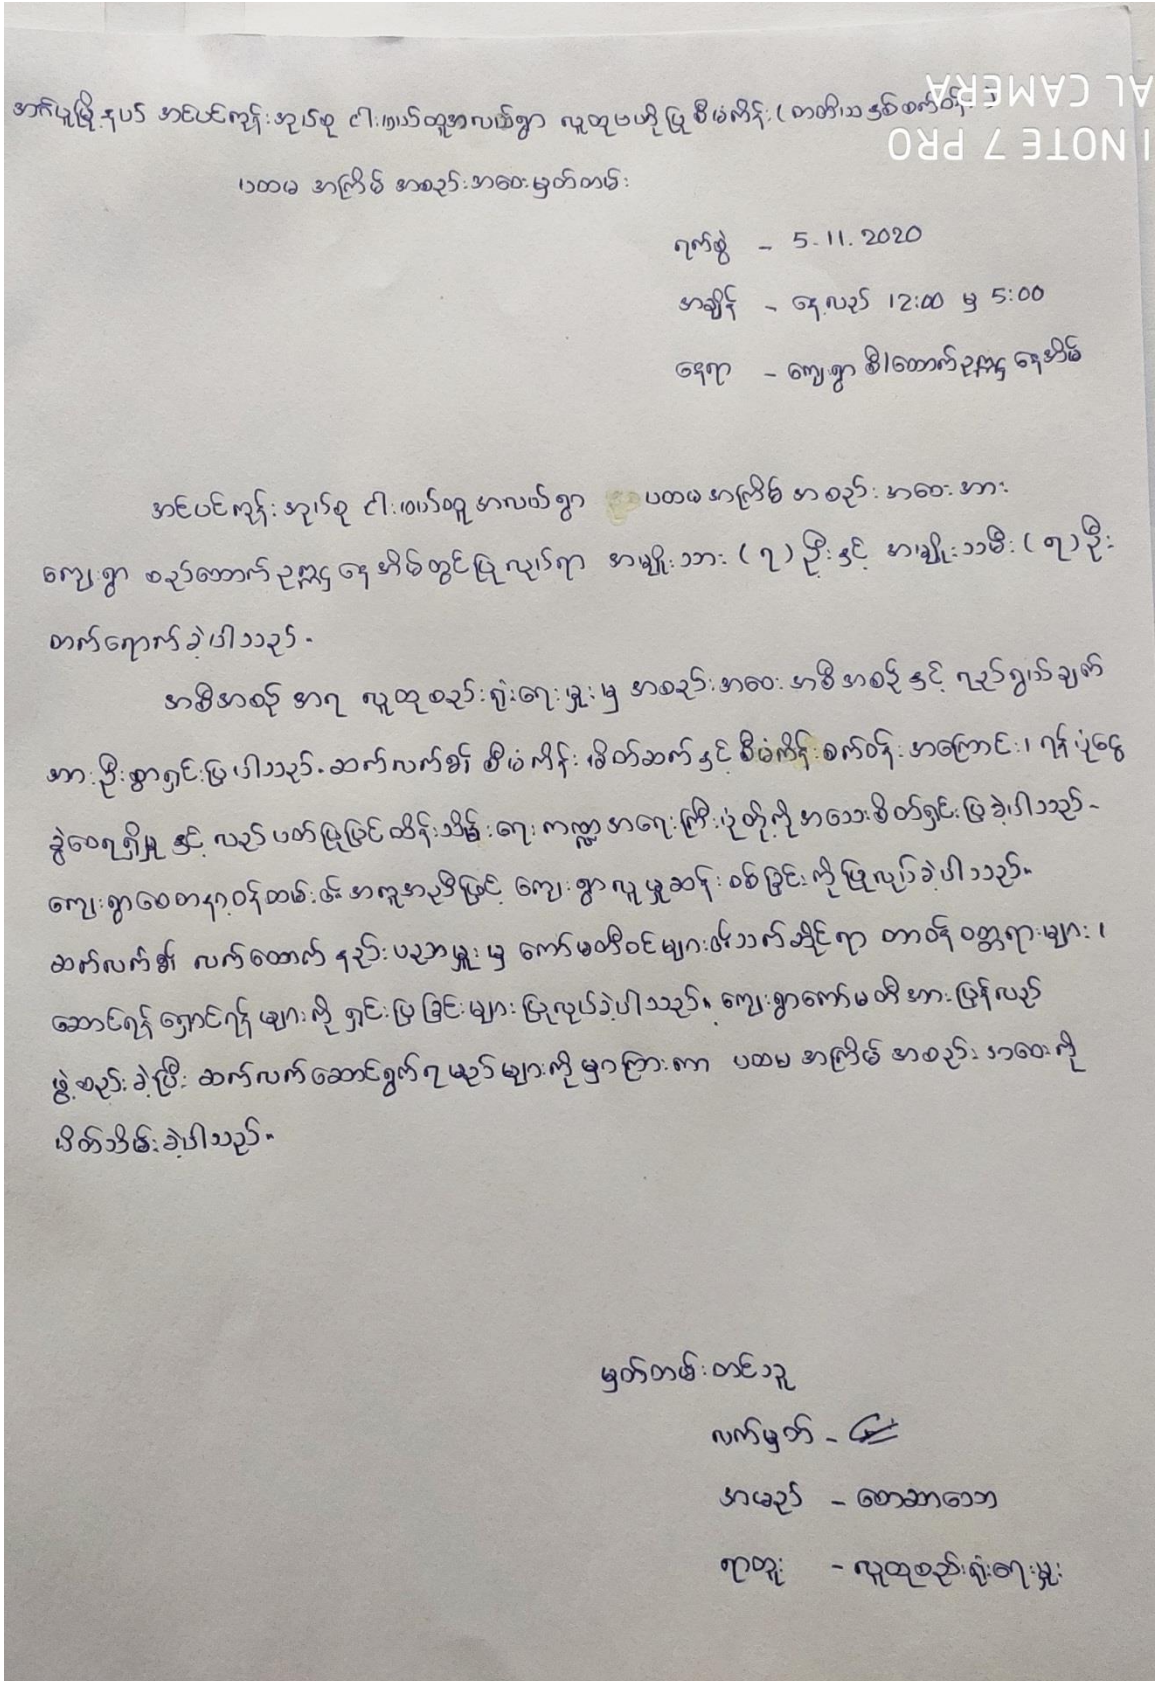 အင်ပင်ကုန်းအုပ်စု ငါးဖယ်ထူအလယ်ရွာ လူထုဗဟိုပြုစီမံကိန်း (တတိယနှစ်စက်ဝန်း)
AL CAMERA
I NOTE 7 PRO
ပထမ အကြိမ် အစည်းအဝေးမှတ်တမ်း
ရက်စွဲ - 5.11.2020
အချိန် - နေ့လည် 12:00 မှ 5:00
နေရာ - ကျေးရွာ စီ/ထောက်ဥက္ကဌ နေအိမ်
အင်ပင်ကုန်းအုပ်စု ငါးဖယ်ထူအလယ်ရွာ ပထမအကြိမ် အစည်းအဝေးအား
ကျေးရွာ စည်ထောက်ဥက္ကဌနေအိမ်တွင်ပြုလုပ်ရာ အမျိုးသား (၇) ဦးနှင့် အမျိုးသမီး (၅) ဦး
တက်ရောက်ခဲ့ပါသည်။
အစီအစဉ် အရ လူထုစည်းရုံးရေးမှူးမှ အစည်းအဝေးအစီအစဉ်နှင့် ရည်ရွယ်ချက်
အားဦးစွာရှင်းပြပါသည်။ ဆက်လက်၍ စီမံကိန်းမိတ်ဆက်နှင့် စီမံကိန်းစက်ဝန်းအကြောင်း၊ ရန်ပုံငွေ
ခွဲဝေရရှိမှုနှင့် လည်ပတ်ပြုပြင်ထိန်းသိမ်းရေး ကဏ္ဍအရေးကြီးပုံတို့ကိုအသေးစိတ်ရှင်းပြခဲ့ပါသည်။
ကျေးရွာစေတနာ့ဝန်ထမ်း၏အကူအညီဖြင့် ကျေးရွာလူမှုဆန်းစစ်ခြင်းကိုပြုလုပ်ခဲ့ပါသည်။
ဆက်လက်၍ လက်ထောက်နည်းပညာမှူးမှ ကော်မတီဝင်များ၏သက်ဆိုင်ရာ တာဝန်ဝတ္တရားများ၊
ဆောင်ရန်ရှောင်ရန်များကို ရှင်းပြခြင်းများပြုလုပ်ခဲ့ပါသည်။ ကျေးရွာကော်မတီအားပြန်လည်
ဖွဲ့စည်းခဲ့ပြီး ဆက်လက်ဆောင်ရွက်ရမည်များကိုမှာကြားကာ ပထမအကြိမ်အစည်းအဝေးကို
ပိတ်သိမ်းခဲ့ပါသည်။
မှတ်တမ်းတင်သူ
လက်မှတ် -
အမည် -
ရာထူး - လူထုစည်းရုံးရေးမှူး